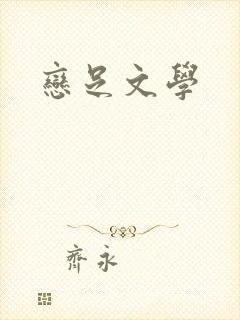 戀足文學
齊永